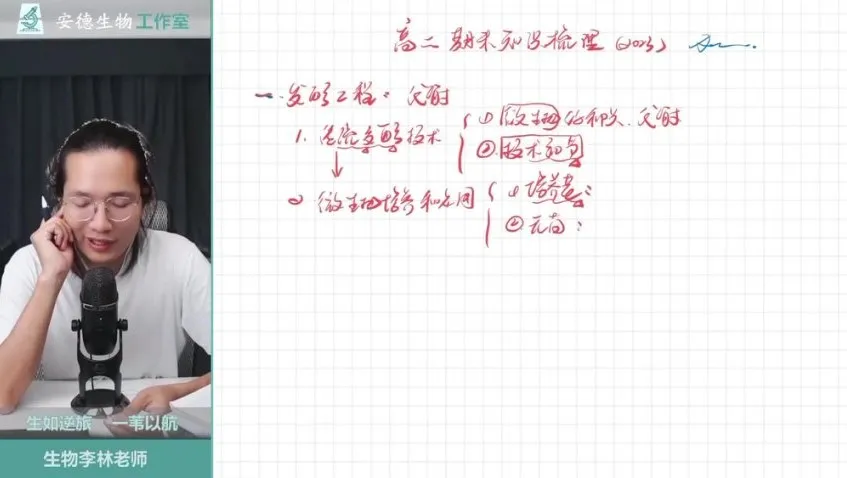 安德生物 工作室
高二期末知识梳理 (2023)
一. 发酵工程: 代谢
1. 传统发酵技术
① 微生物的种类. 代谢
② 技术和点
2 微生物培养和应用
① 培养基:
② 无菌:
生如逆旅 一苇以航
生物李林老师